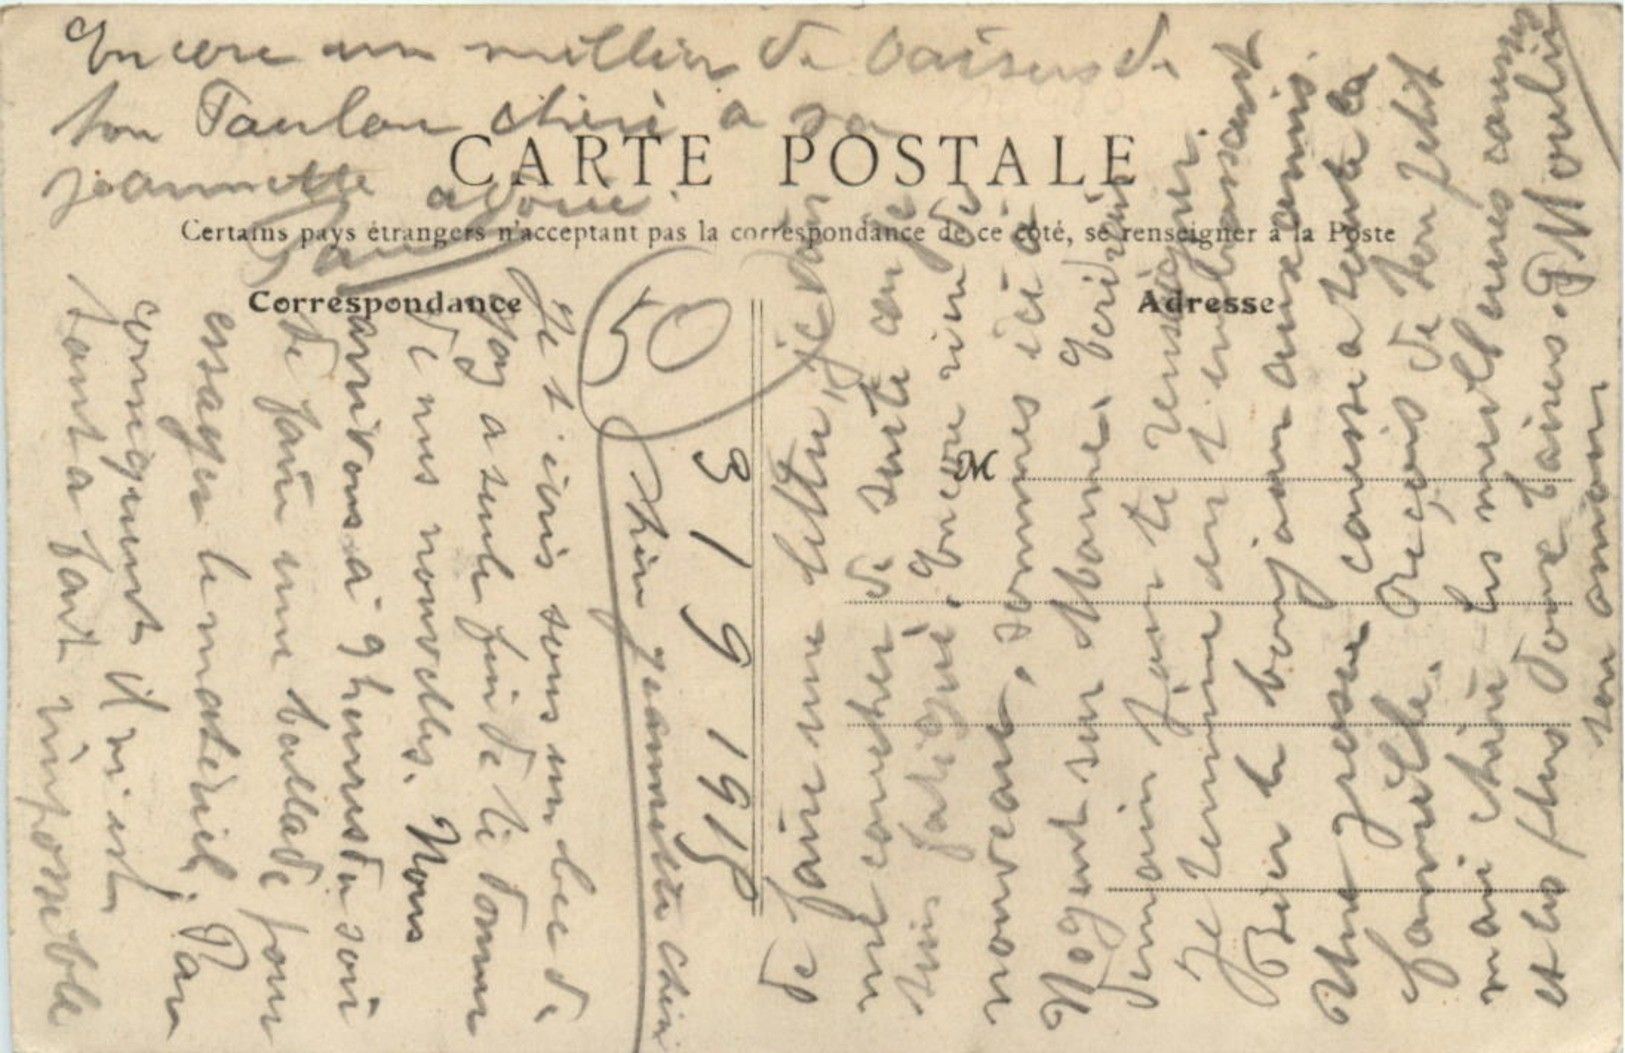 Encore un millier de baisers de
ton Paulon chéri a sa
Jeannette adorée.
Paul
CARTE POSTALE
Certains pays étrangers n'acceptant pas la correspondance de ce côté, se renseigner à la Poste
Correspondance
Adresse
M
50
3 1 9 1915
Chère Jeannette chérie
Je t'écris sous un bec de
gaz a seule fin de te donner
de mes nouvelles. Nous
arrivons à 9 heures du soir
de faire une ballade pour
essayer le matériel. Par
conséquent il m'est
tout a fait impossible
de faire une lettre, je vais
me coucher de suite car je
suis fatigué. Encore rien de
nouveau. sommes ici à
Nogent sur Marne. Ecrirai
demain pour te renseigner.
Je termine en t'embrassant
Bien le bonjour aux amis.
Une grosse caresse a toute la
famille. Reçois de ton petit
mari chéri les meilleures caresses
et les plus doux baisers. P Moulin
ton amour